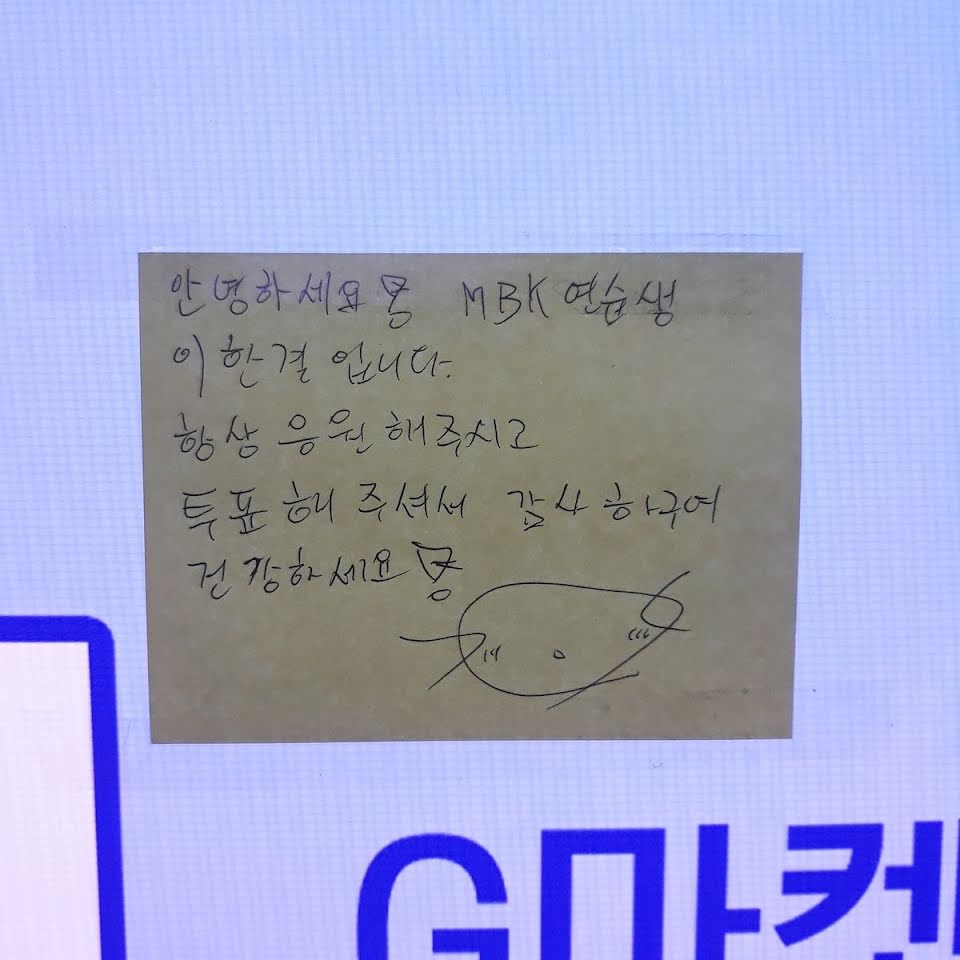 안녕하세요 MBK 연습생
이한결 입니다.
항상 응원해주시고
투표해 주셔서 감사하구여
건강하세요
G마켓